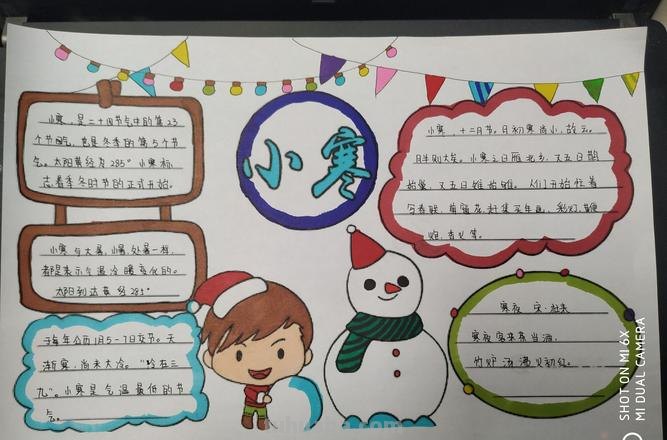 小寒
小寒，是二十四节气中的第23
个节气，也是冬季的第5个节
气。太阳黄经为285°小寒标
志着季冬时节的正式开始。
小寒与大暑、小暑、处暑一样，
都是表示气温冷暖变化的。
太阳到达黄经285°
于每年公历1月5-7日交节。天
渐寒，尚未大冷。"冷在三
九"。小寒是气温最低的节
气。
小寒，十二月节。月初寒尚小，故云。
月半则大矣。小寒三日雁北乡，又五日鹊
始巢，又五日雉始雊。人们开始忙着
写春联、剪窗花，赶集买年画、彩灯、鞭
炮、香火等。
寒夜 宋·杜耒
寒夜客来茶当酒，
竹炉汤沸火初红。
SHOT ON MI 6X
MI DUAL CAMERA